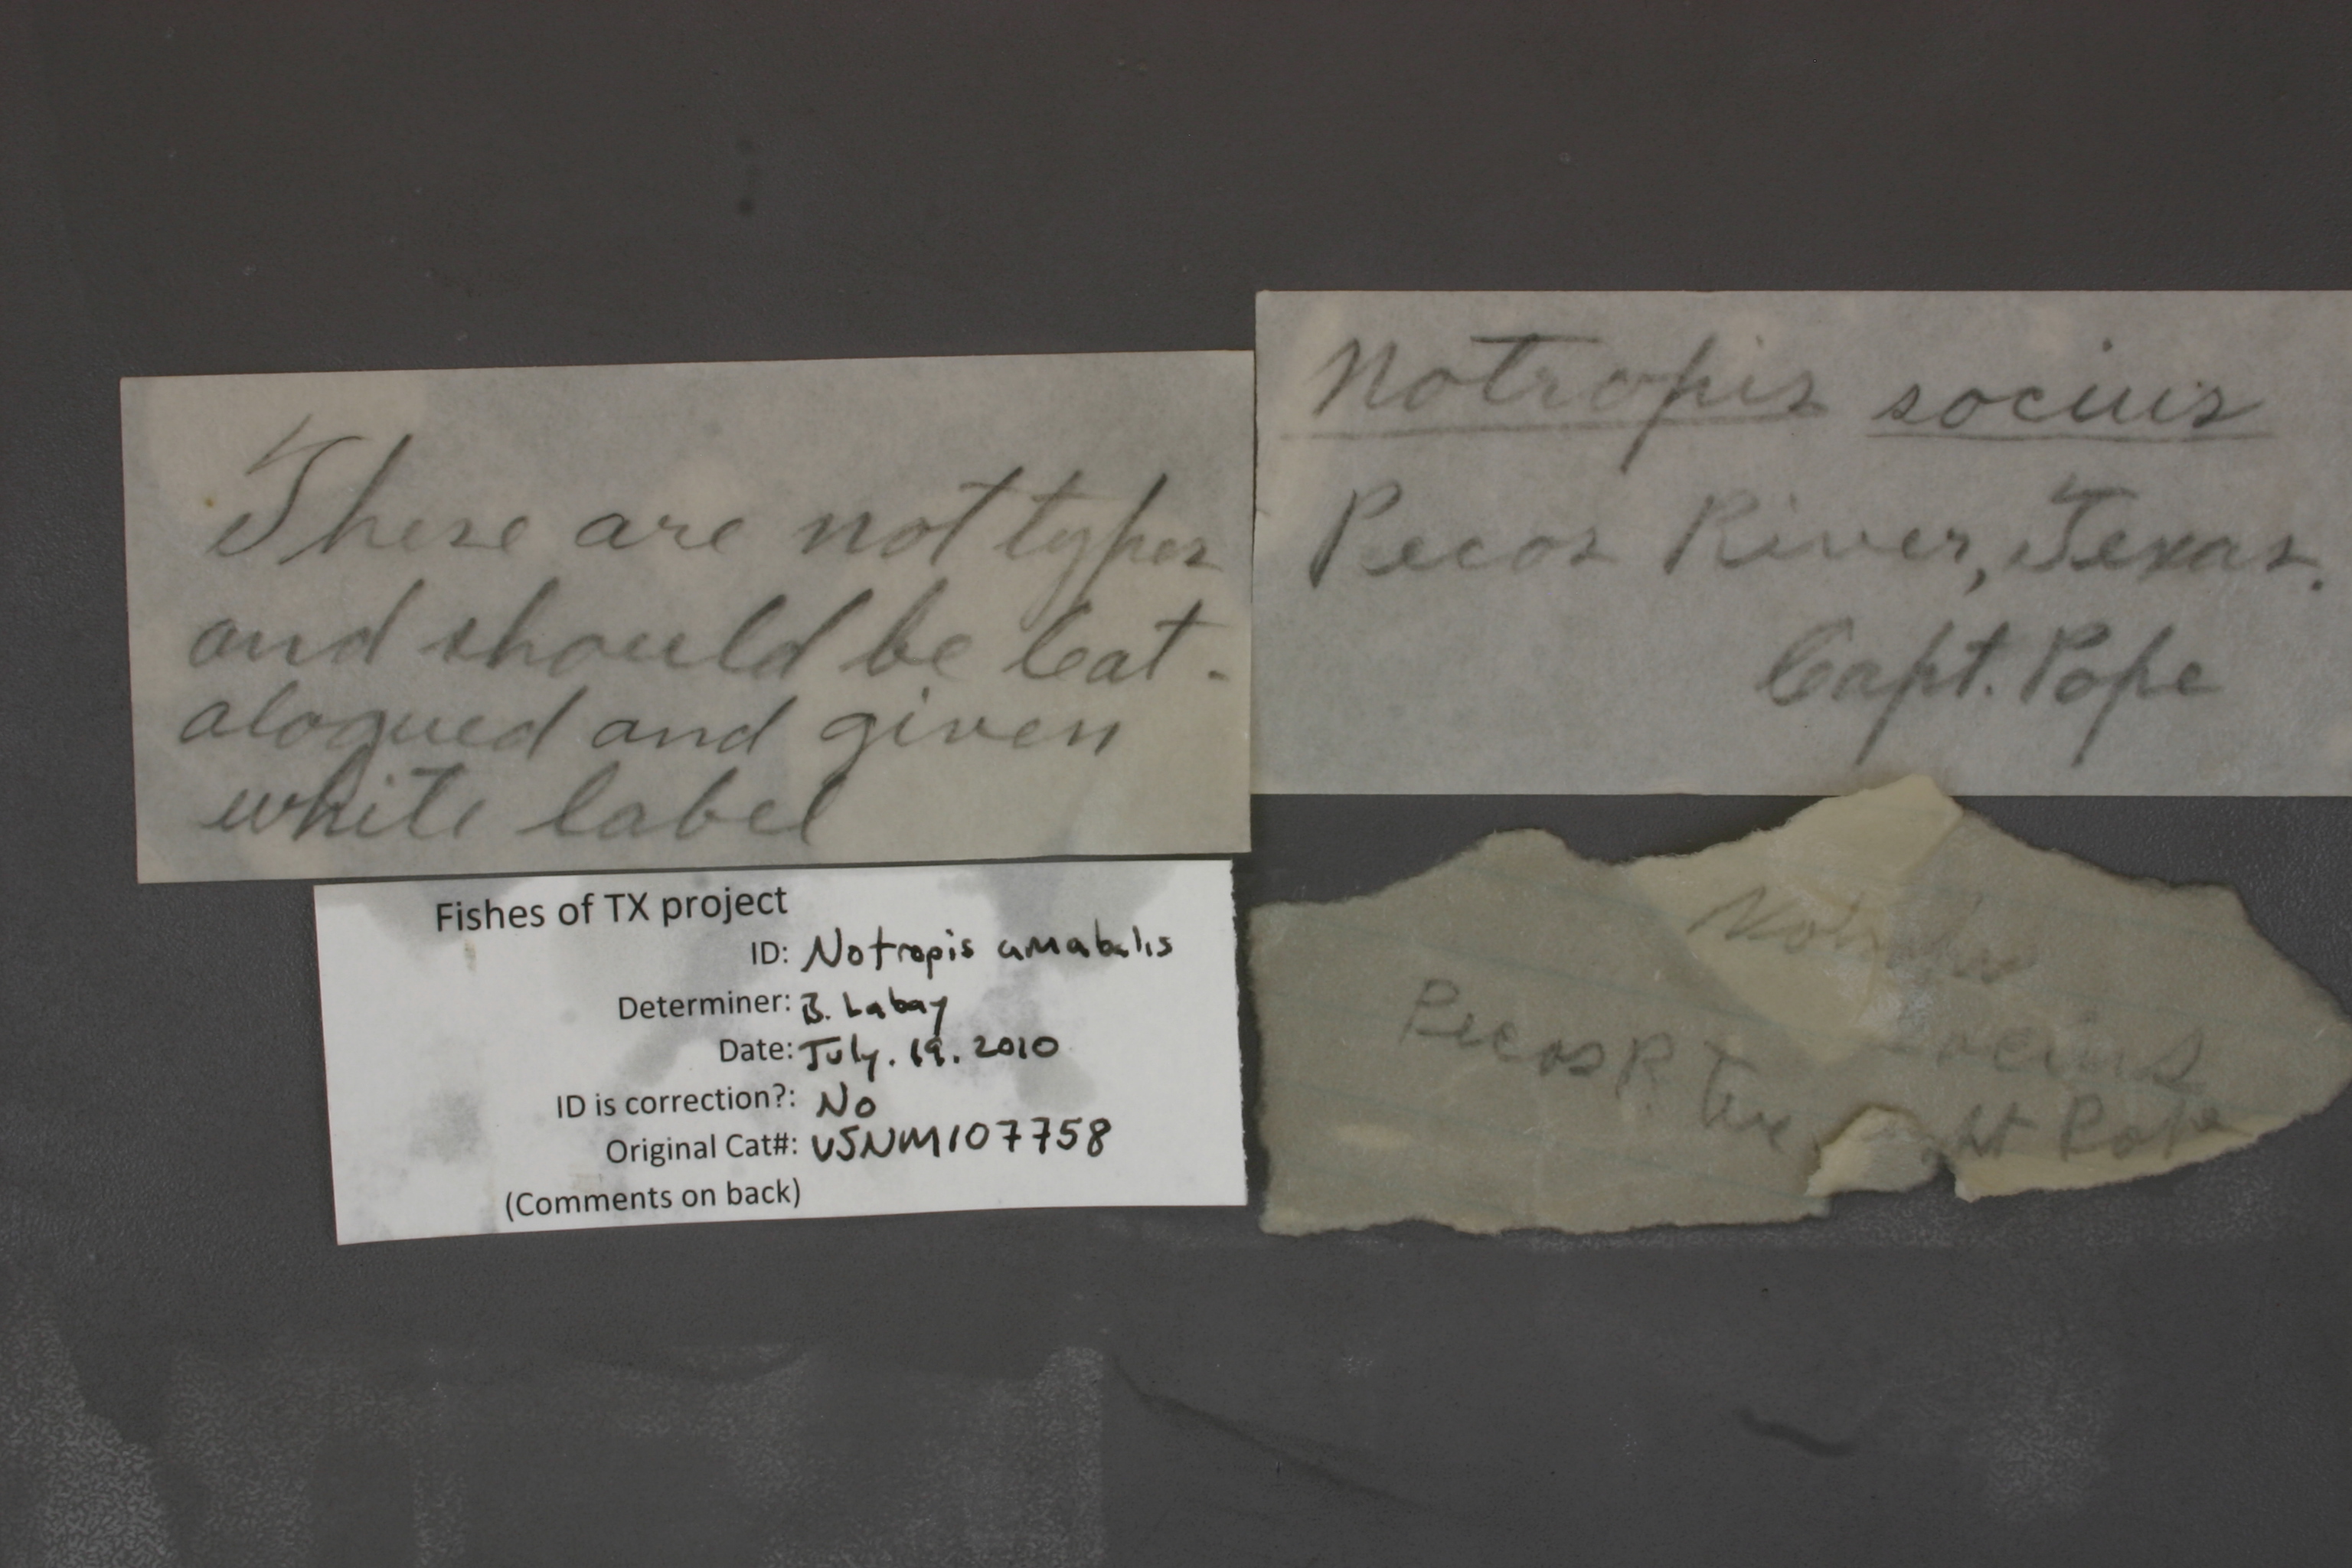 These are not types
and should be Cat-
alogued and given
white label
Notropis socius
Pecos River, Texas.
Capt. Pope
Fishes of TX project
ID: Notropis amabilis
Determiner: B. Labay
Date: July. 19. 2010
ID is correction?: No
Original Cat#: USNM107758
(Comments on back)
Notropis
socius
Pecos R. Tex
Pope